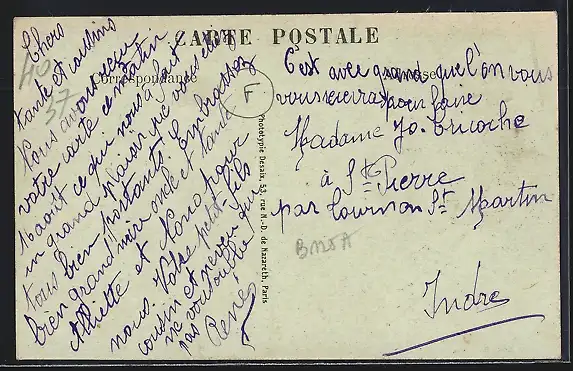 CARTE POSTALE
Correspondance
Chers
tante et cousins
Nous avons reçu
votre carte ce matin
Maout ce qui nous a fait
un grand plaisir que vous êtes
tous bien portants. Embrassez
bien grand'mère oncle et tante
Alliette et Nono pour
nous. Votre petit fils
cousin et neveu qui
ne vous oublie
pas René
F
40
37
Phototypie Desaix, 53, rue N.-D. de Nazareth, Paris
C'est avec grand que l'on vous
vous reverra pour faire
Madame Jo. Bricoche
à St Pierre
par Tournon St Martin
Indre
B128A